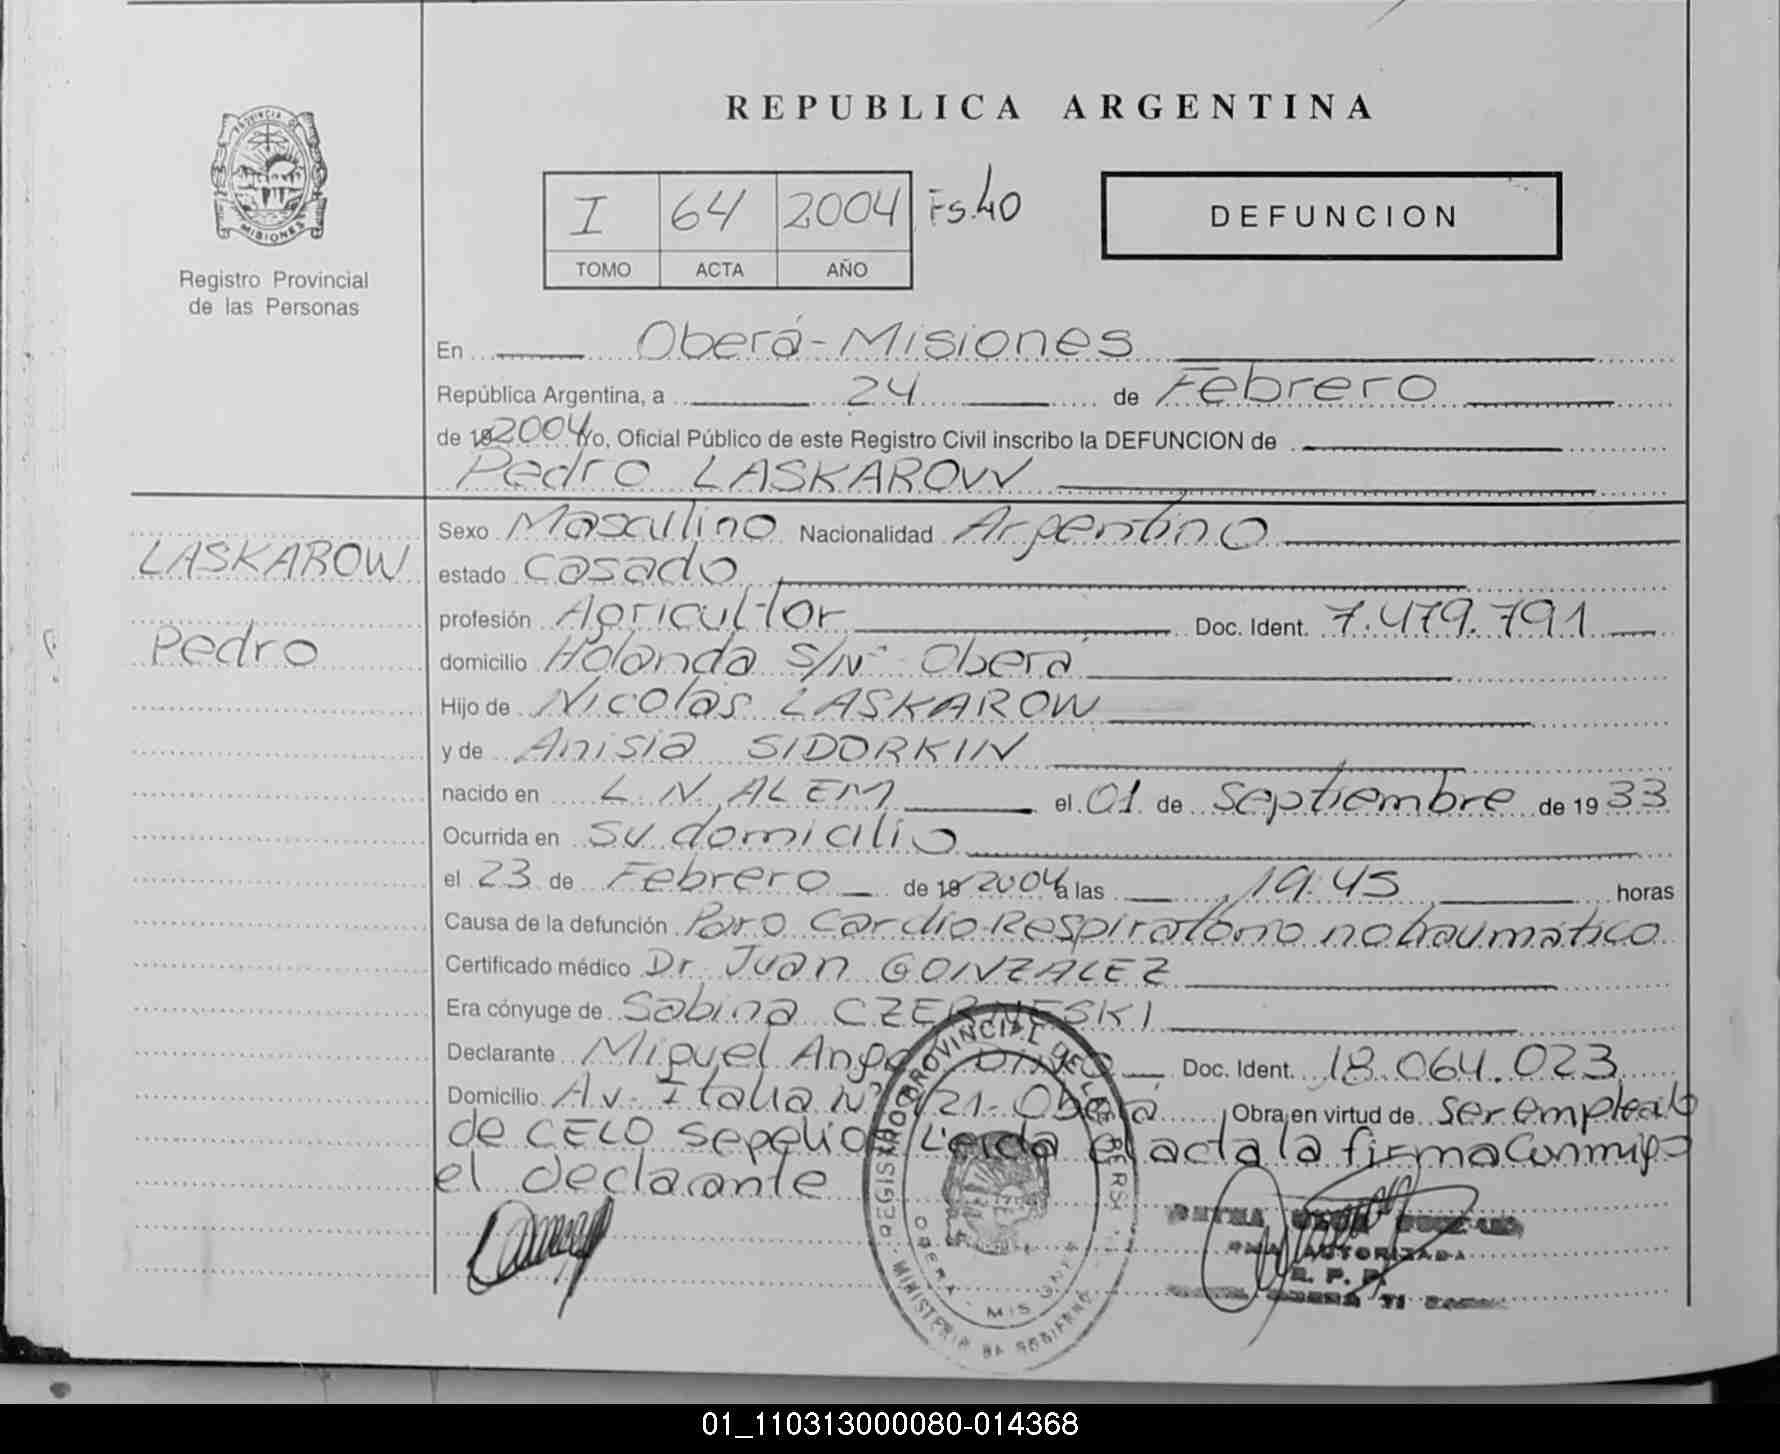 REPUBLICA ARGENTINA
PROVINCIA D
MISIONES
Registro Provincial
de las Personas
I 64 2004 Fs.40
TOMO ACTA AÑO
DEFUNCION
En Oberá-Misiones
República Argentina, a 24 de Febrero
de 19 2004 Yo, Oficial Público de este Registro Civil inscribo la DEFUNCION de
Pedro LASKAROW
LASKAROW
Pedro
Sexo Masculino Nacionalidad Argentino
estado Casado
profesión Agricultor Doc. Ident. 7.479.791
domicilio Holanda S/Nº Oberá
Hijo de Nicolas LASKAROW
y de Anisia SIDORKIN
nacido en L. N. ALEM el 01 de Septiembre de 1933
Ocurrida en su domicilio
el 23 de Febrero de 19 2004 a las 19.45 horas
Causa de la defunción Paro Cardio-Respiratorio no traumático
Certificado médico Dr. Juan GONZALEZ
Era cónyuge de Sabina CZERNESKI
Declarante Miguel Angel Doc. Ident. 18.064.023
Domicilio Av. Italia Nº 21- Oberá Obra en virtud de ser empleado
de CELO sepelio Leida el acta la firma Conmigo
el declarante
REGISTRO PROVINCIAL DE LAS PERS
OBERA - MISIONES
MINISTERIO DE GOBIERNO
AUTORIZADA
R. P. P.
01_110313000080-014368